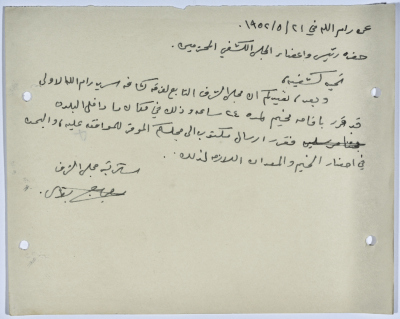 عن رام الله في ٢١ / ٥ / ١٩٥٢.
حضرة رئيس واعضاء المجلس الكشفي المحترمين.
تحية كشفية،
وبعد، نفيدكم ان مجلس الشرف التابع لفرقة كشافة سرية رام الله الاولى
قد قرر باقامة مخيم لمدة ٢٤ ساعة وذلك في مكان ما داخل البلدة
فقرر ارسال مكتوب الى مجلسكم الموقر للموافقة عليه، والبحث
في احضار الخيم والمعدات اللازمة لذلك.
سكرتير مجلس الشرف